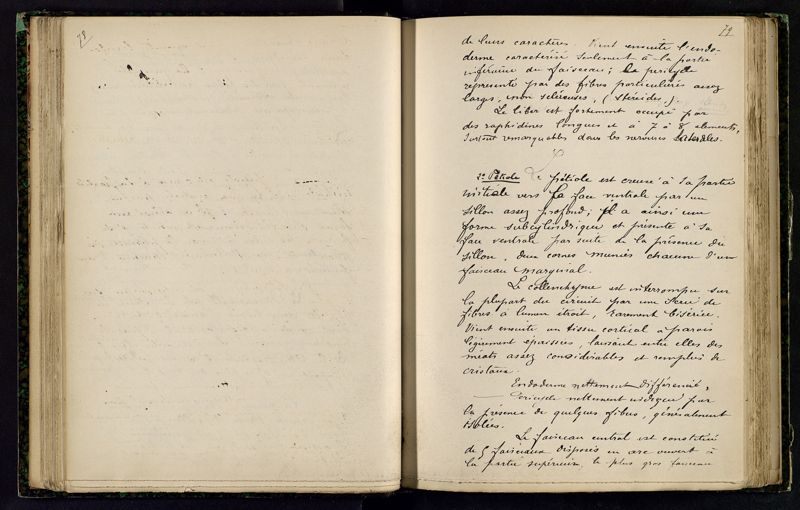 79
79
de leurs caractères. Vient ensuite l'endo-
derme caractérisé seulement à la partie
inférieure du faisceau; le péricycle
représenté par des fibres particulières assez
larges, non scléreuses, (stéréides).
Le liber est fortement occupé par
des raphidines longues et à 7 à 8 éléments,
surtout remarquables dans les nervures latérales.
2º Pétiole Le pétiole est creusé à sa partie
initiale vers la face ventrale par un
sillon assez profond; il a ainsi une
forme subcylindrique et présente à sa
face ventrale par suite de la présence du
sillon, deux cornes munies chacune d'un
faisceau marginal.
Le collenchyme est interrompu sur
la plupart du circuit par une série de
fibres à lumen étroit, rarement bisériée.
Vient ensuite un tissu cortical à parois
légèrement épaissies, laissant entre elles des
méats assez considérables et remplies de
cristaux.
Endoderme nettement différencié,
Péricycle nettement indiqué par
la présence de quelques fibres, généralement
isolées.
Le faisceau central est constitué
de 5 faisceaux disposés en arc ouvert à
la partie supérieure, le plus gros faisceau